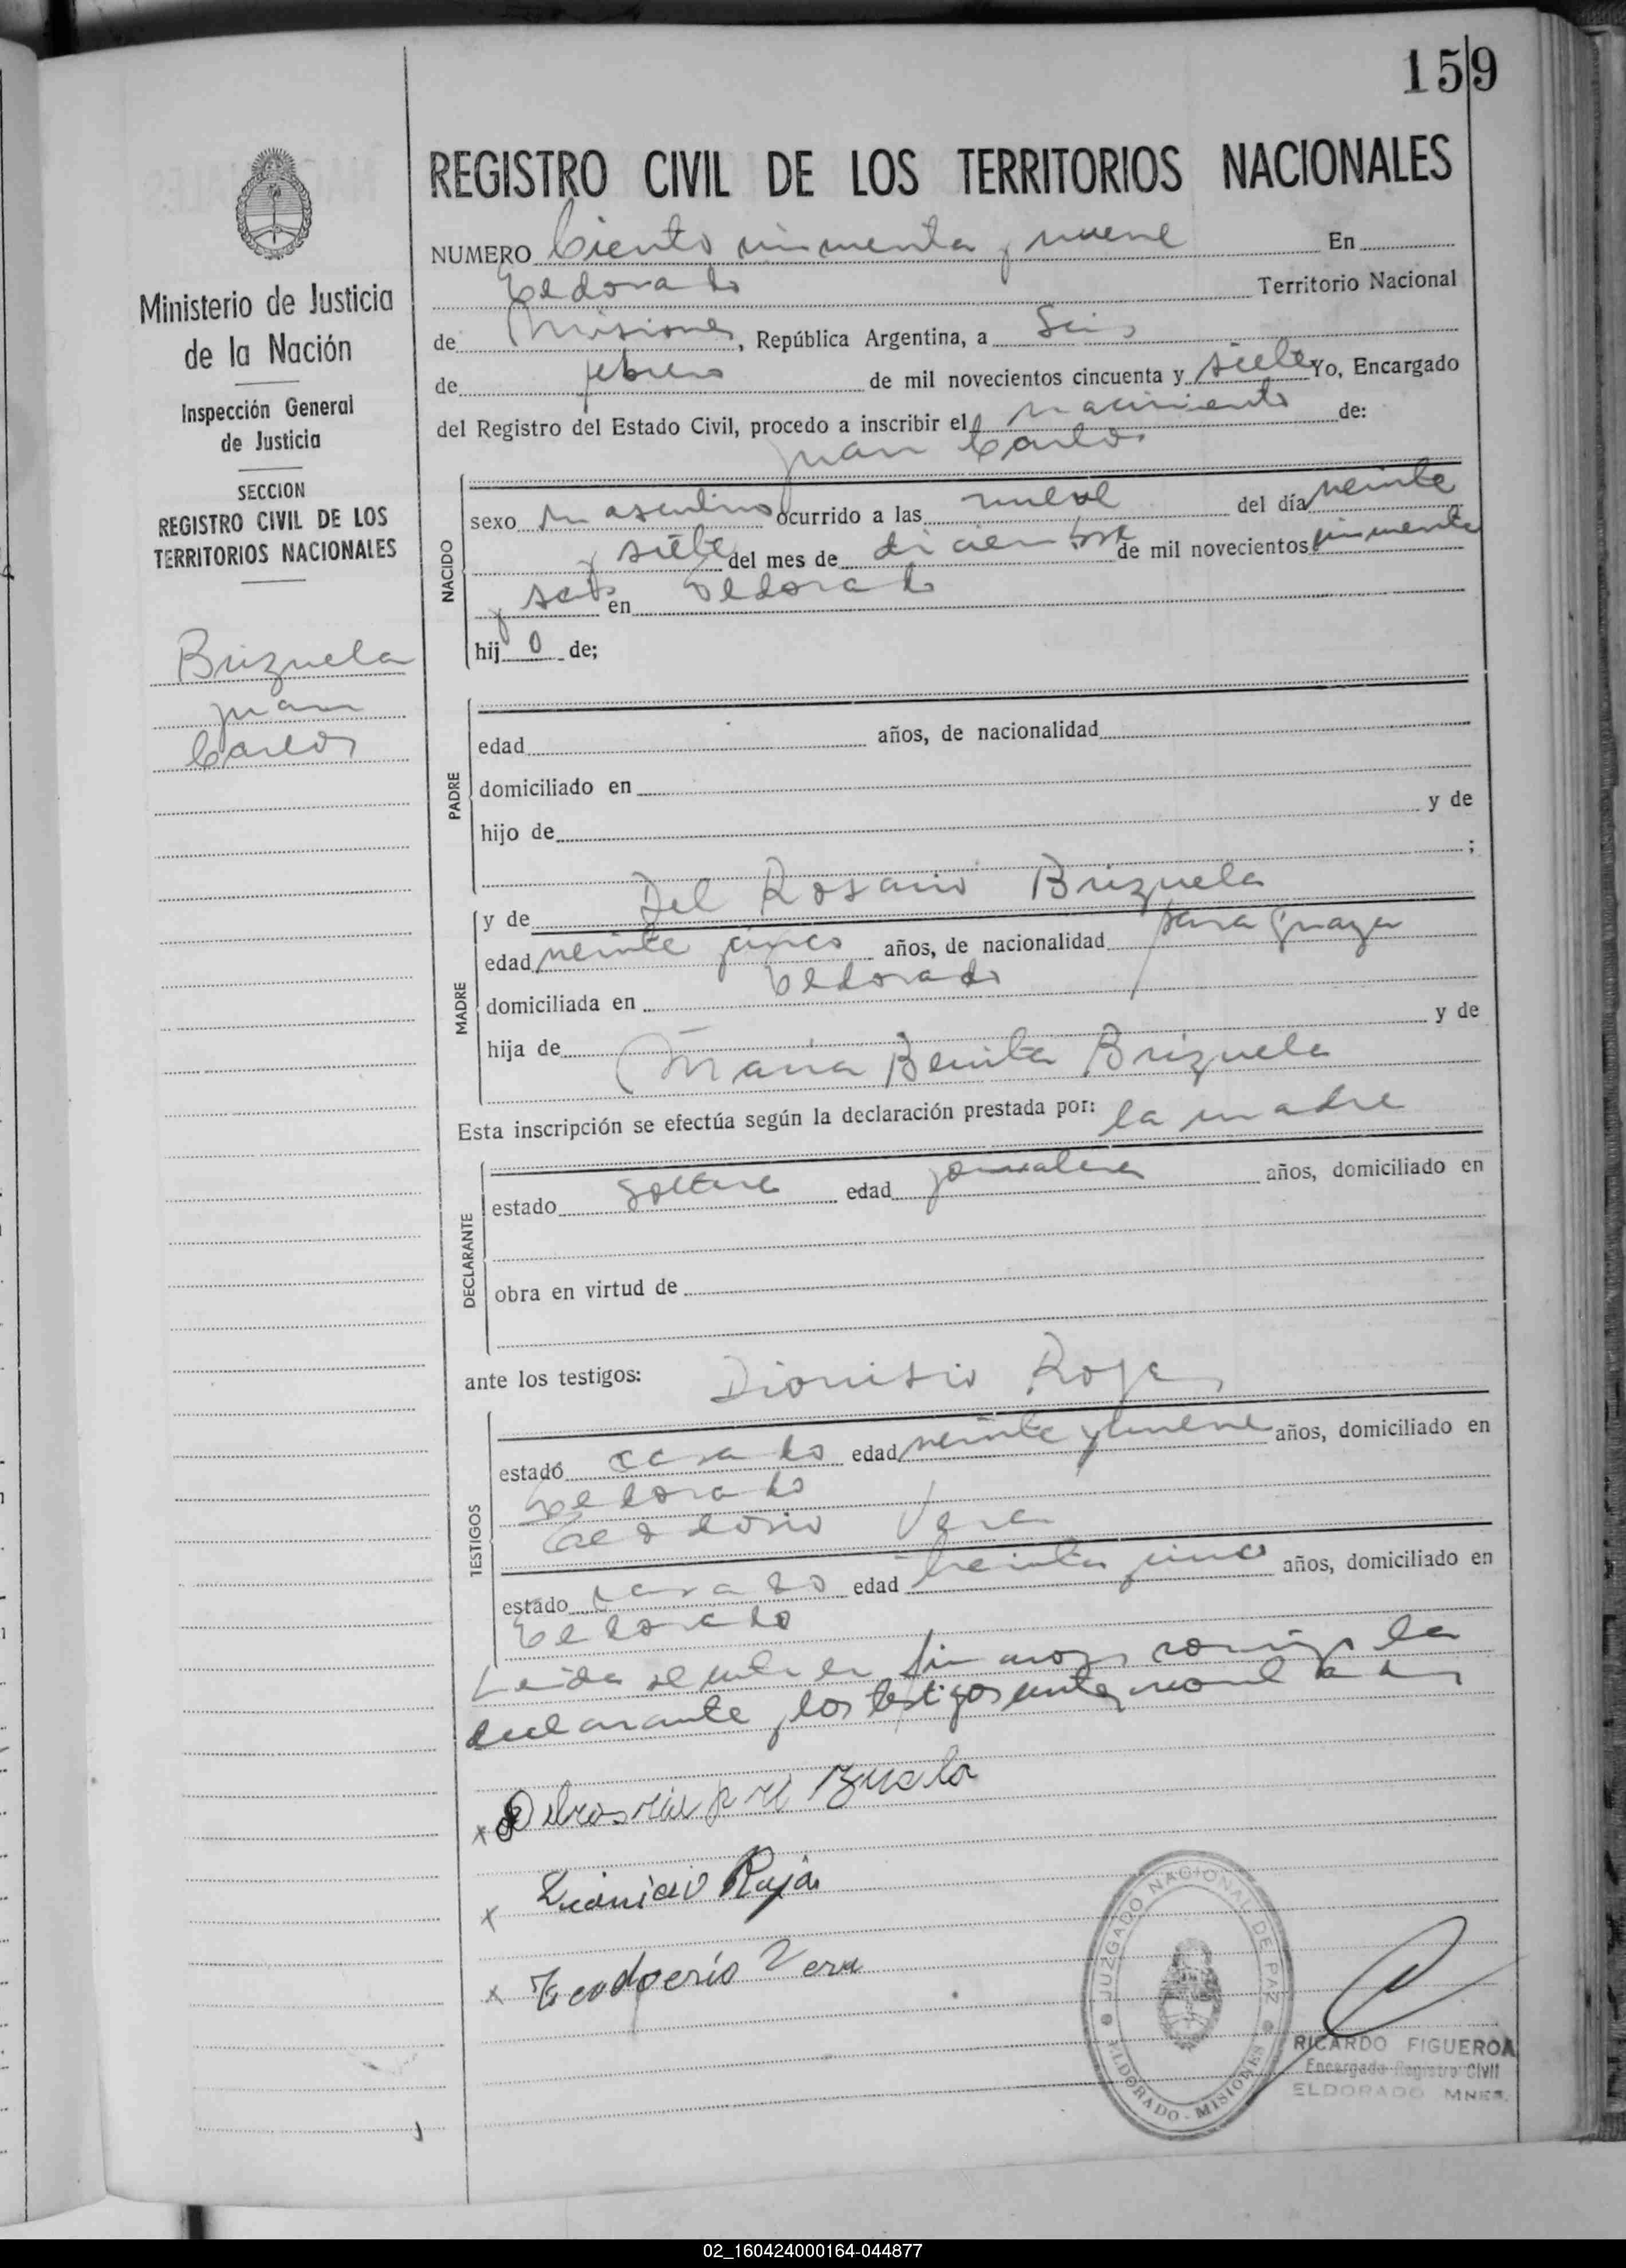 159
REGISTRO CIVIL DE LOS TERRITORIOS NACIONALES
Ministerio de Justicia
de la Nación
Inspección General
de Justicia
SECCION
REGISTRO CIVIL DE LOS
TERRITORIOS NACIONALES
Brizuela
Juan
Carlos
NUMERO Ciento cincuenta y nueve En
Eldorado Territorio Nacional
de Misiones, República Argentina, a Seis
de febrero de mil novecientos cincuenta y siete Yo, Encargado
del Registro del Estado Civil, procedo a inscribir el nacimiento de:
Juan Carlos
NACIDO
sexo masculino ocurrido a las nueve del día veinte
y siete del mes de diciembre de mil novecientos cincuenta
y seis en Eldorado
hij o de;
PADRE
edad años, de nacionalidad
domiciliado en
hijo de y de
;
MADRE
y de Del Rosario Brizuela
edad veinte y cinco años, de nacionalidad paraguaya
domiciliada en Eldorado
hija de y de
Maria Benita Brizuela
Esta inscripción se efectúa según la declaración prestada por: la madre
DECLARANTE
estado soltera edad jornalera años, domiciliado en
obra en virtud de
ante los testigos: Dionisio Rojas
TESTIGOS
estado casado edad veinte y nueve años, domiciliado en
Eldorado
Vera
estado casado edad treinta y cinco años, domiciliado en
Eldorado
Leida el acta la firmaron conmigo la
declarante y los testigos antes nombrados
x Delrosario Brizuela
x Dionicio Rojas
x Vera
JUZGADO NACIONAL DE PAZ
ELDORADO - MISIONES
RICARDO FIGUEROA
Encargado Registro Civil
ELDORADO MNES.
02_160424000164-044877